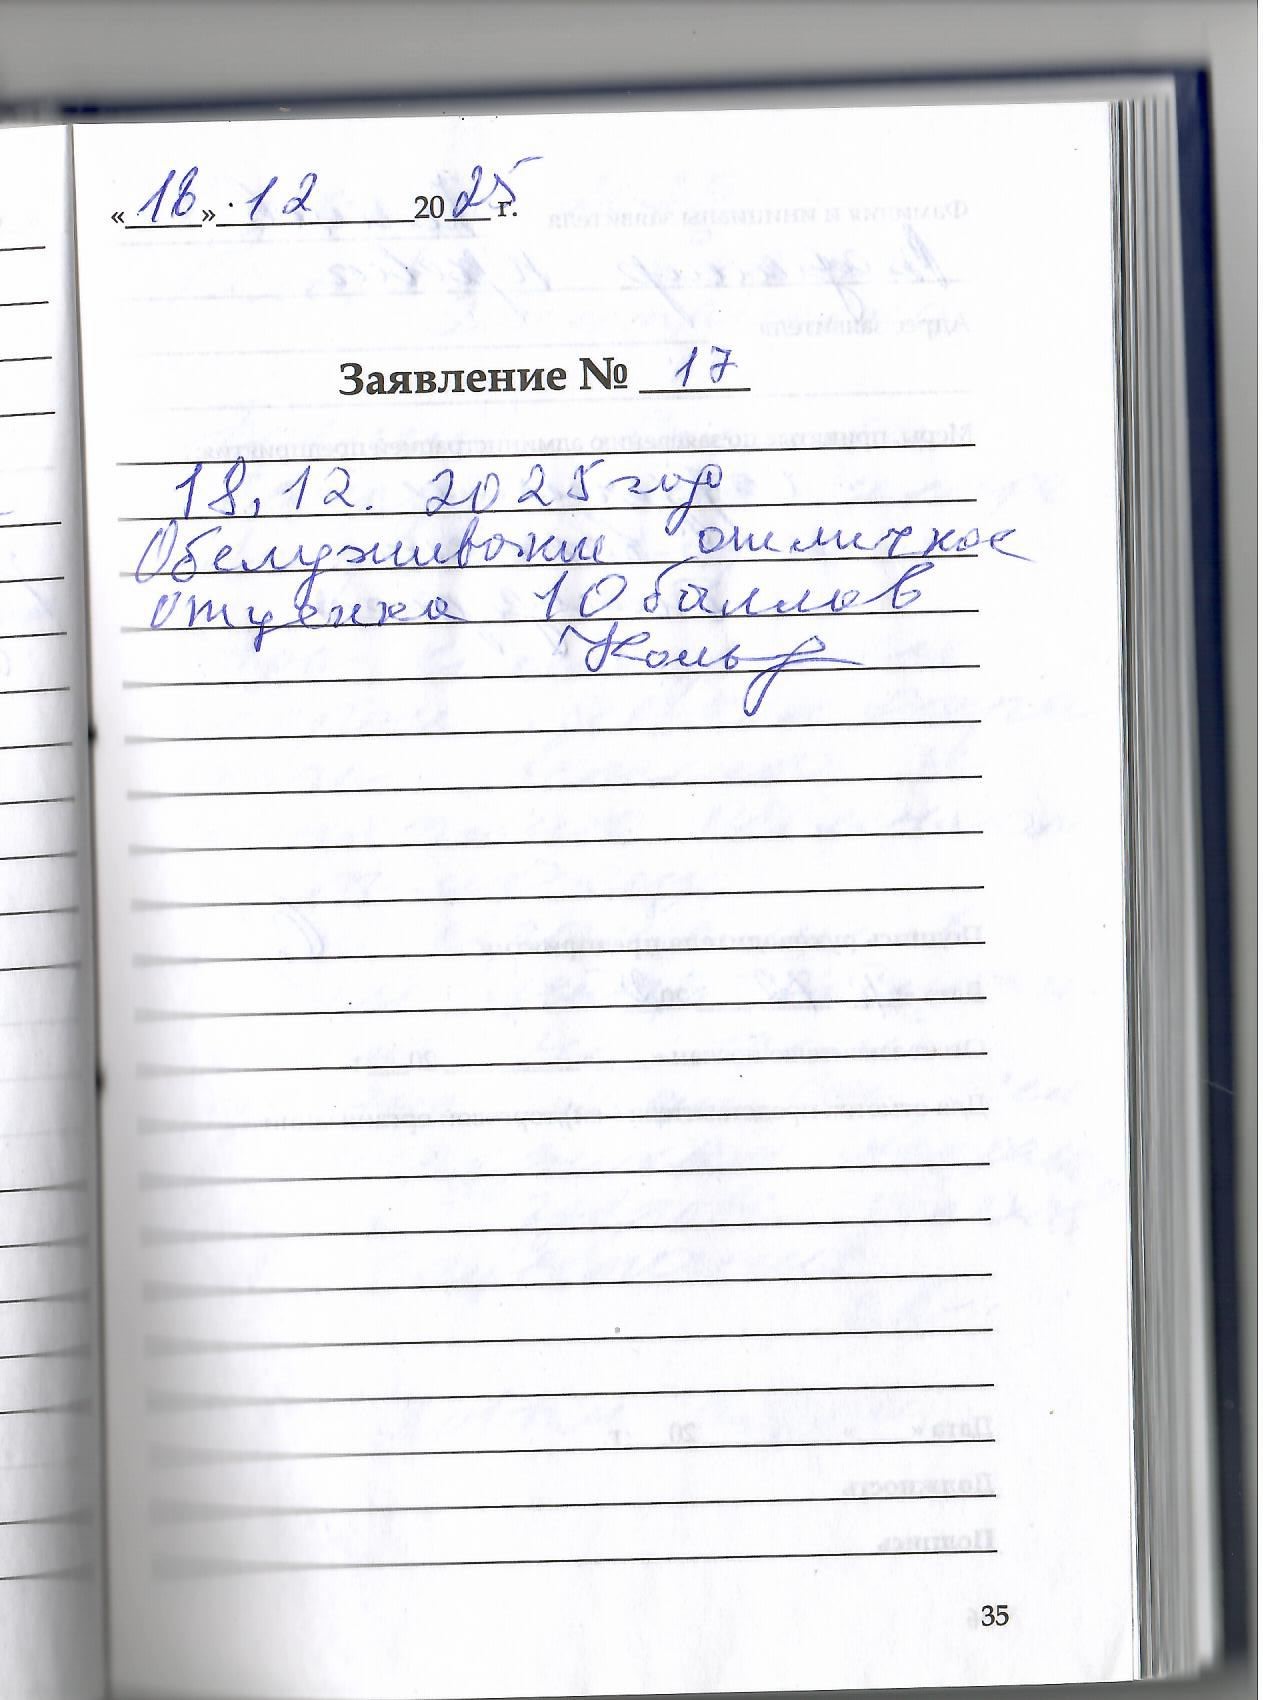 «18» 12 2025 г.
Заявление № 17
18.12.2025 год
Обслуживание отличное
Отценка 10 баллов
35